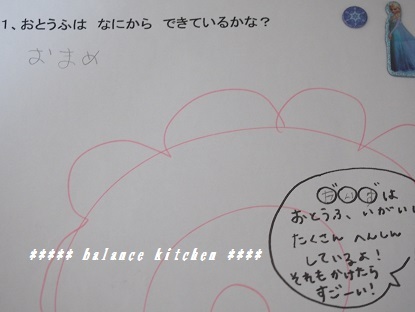 1、おとうふは なにから できているかな？
おまめ
だいずは
おとうふ、いがいに
たくさん へんしん
しているよ！
それもかけたら
すごーい！
##### balance kitchen ####